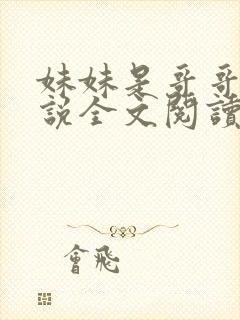 妹妹是哥哥
說全文閱讀
會飛